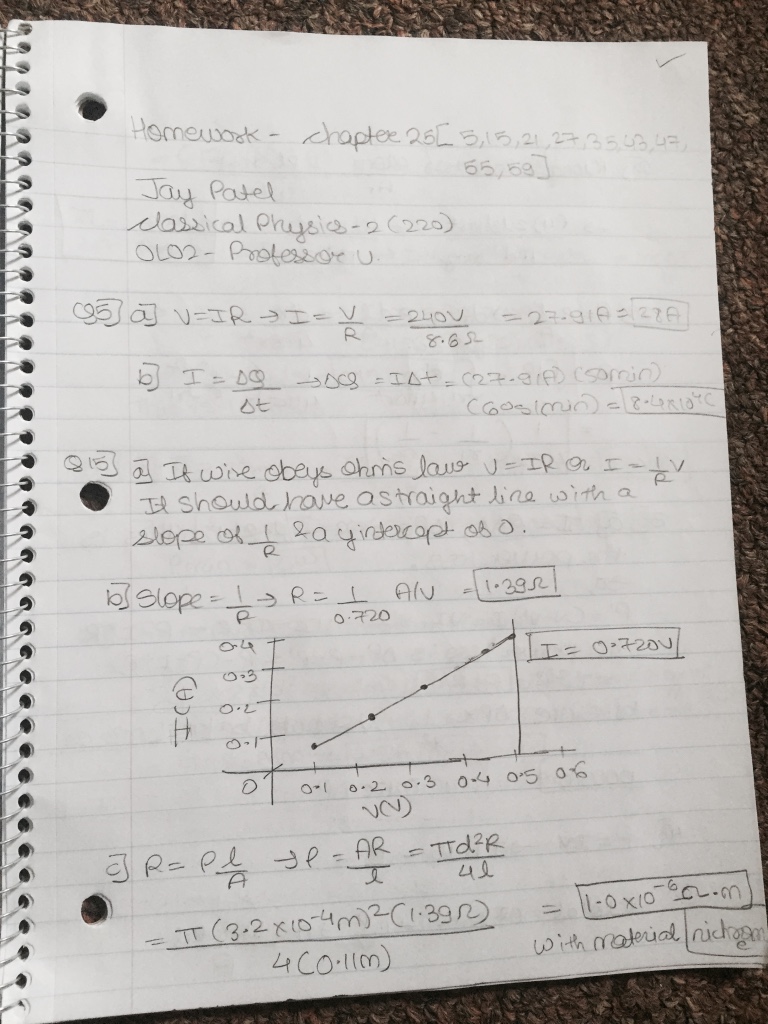 Homework - chapter 25[5,15,21,27,35,43,47,
55,59]
Jay Patel
classical Physics-2 (220)
OL02- Professor U.
Q5] a] V=IR → I = V/R = 240V/8.6Ω = 27.91A = 28A
b] I = ΔQ/Δt → ΔQ = IΔt = (27.91A) (50min)
(60s/min) = 8.4x10⁴C
Q15] a] If wire obeys ohm's law V=IR or I = 1/R V
It should have a straight line with a
slope of 1/R & a y intercept of 0.
b] Slope = 1/R → R = 1/0.720 A/V = 1.39Ω
I = 0.720V
0.4
0.3
0.2
0.1
I (A)
0 0.1 0.2 0.3 0.4 0.5 0.6
V(V)
c] R = ρ l/A → ρ = AR/l = πd²R/4l
= π (3.2x10⁻⁴m)² (1.39Ω)/4(0.11m) = 1.0x10⁻⁶Ω.m
with material nichrome